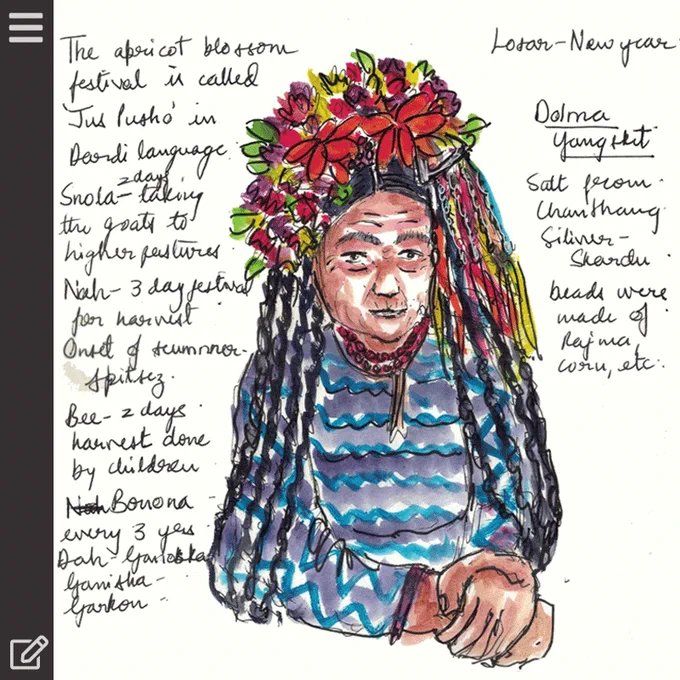 The apricot blossom
festival is called
'Jus Pushō' in
Dardi language.
2 days
Snola- taking
the goats to
higher pastures
Nah- 3 day festival
for harvest
Onset of summer-
Spitsez.
Bee- 2 days
harvest done
by children
Bonona -
every 3 yrs
Dah-
Ganisha-
Garkon-
Losar-New year
Dolma
Yangskit
Salt from
Chanthang
Silver-
Skardu
beads were
made of
Rajma,
corn, etc.